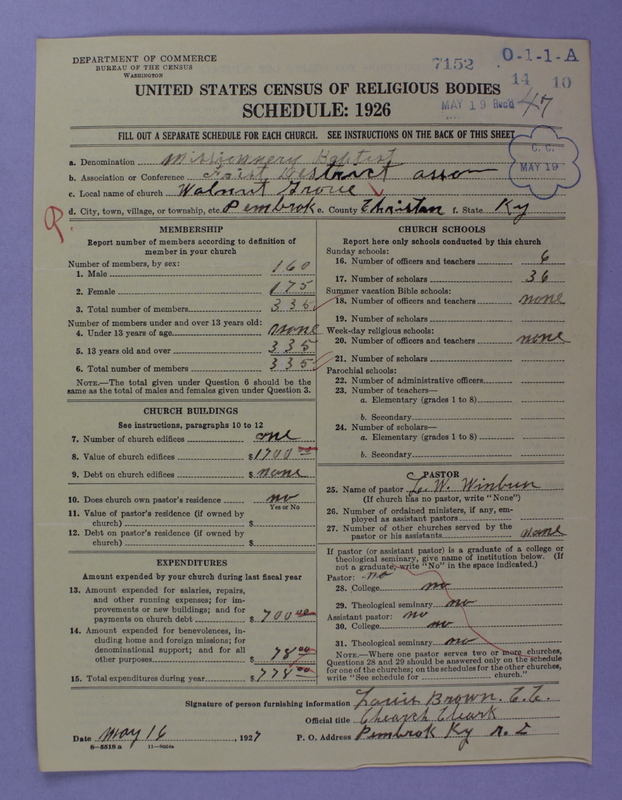 DEPARTMENT OF COMMERCE
BUREAU OF THE CENSUS
WASHINGTON
7152
O-1-1-A
14 10
MAY 19 Rec'd 47
UNITED STATES CENSUS OF RELIGIOUS BODIES
SCHEDULE: 1926
FILL OUT A SEPARATE SCHEDULE FOR EACH CHURCH. SEE INSTRUCTIONS ON THE BACK OF THIS SHEET
C. C.
MAY 19
a. Denomination Missionnery Baptist
b. Association or Conference Destrict asso
c. Local name of church Walnut Grove
d. City, town, village, or township, etc. Pembrok e. County Christan f. State Ky
MEMBERSHIP
Report number of members according to definition of member in your church
Number of members, by sex:
1. Male 160
2. Female 175
3. Total number of members 335
Number of members under and over 13 years old:
4. Under 13 years of age none
5. 13 years old and over 335
6. Total number of members 335
NOTE.—The total given under Question 6 should be the same as the total of males and females given under Question 3.
CHURCH BUILDINGS
See instructions, paragraphs 10 to 12
7. Number of church edifices one
8. Value of church edifices $1700 00
9. Debt on church edifices $ none
10. Does church own pastor's residence no
Yes or No
11. Value of pastor's residence (if owned by church) $
12. Debt on pastor's residence (if owned by church) $
EXPENDITURES
Amount expended by your church during last fiscal year
13. Amount expended for salaries, repairs, and other running expenses; for improvements or new buildings; and for payments on church debt $ 700 00
14. Amount expended for benevolences, including home and foreign missions; for denominational support; and for all other purposes 78 00
15. Total expenditures during year $ 778 00
CHURCH SCHOOLS
Report here only schools conducted by this church
Sunday schools:
16. Number of officers and teachers 6
17. Number of scholars 36
Summer vacation Bible schools:
18. Number of officers and teachers none
19. Number of scholars
Week-day religious schools:
20. Number of officers and teachers none
21. Number of scholars
Parochial schools:
22. Number of administrative officers
23. Number of teachers—
a. Elementary (grades 1 to 8)
b. Secondary
24. Number of scholars—
a. Elementary (grades 1 to 8)
b. Secondary
PASTOR
25. Name of pastor L. W. Winburn
(If church has no pastor, write "None")
26. Number of ordained ministers, if any, employed as assistant pastors
27. Number of other churches served by the pastor or his assistants none
If pastor (or assistant pastor) is a graduate of a college or theological seminary, give name of institution below. (If not a graduate, write "No" in the space indicated.)
Pastor: no
28. College no
29. Theological seminary no
Assistant pastor: no
30. College no
31. Theological seminary no
NOTE.—Where one pastor serves two or more churches, Questions 28 and 29 should be answered only on the schedule for one of the churches; on the schedules for the other churches, write "See schedule for church."
Signature of person furnishing information Louis Brown. C. C.
Official title Chearch Cleark
Date May 16, 1927 P. O. Address Pembrok Ky R. 2
8—5518 a